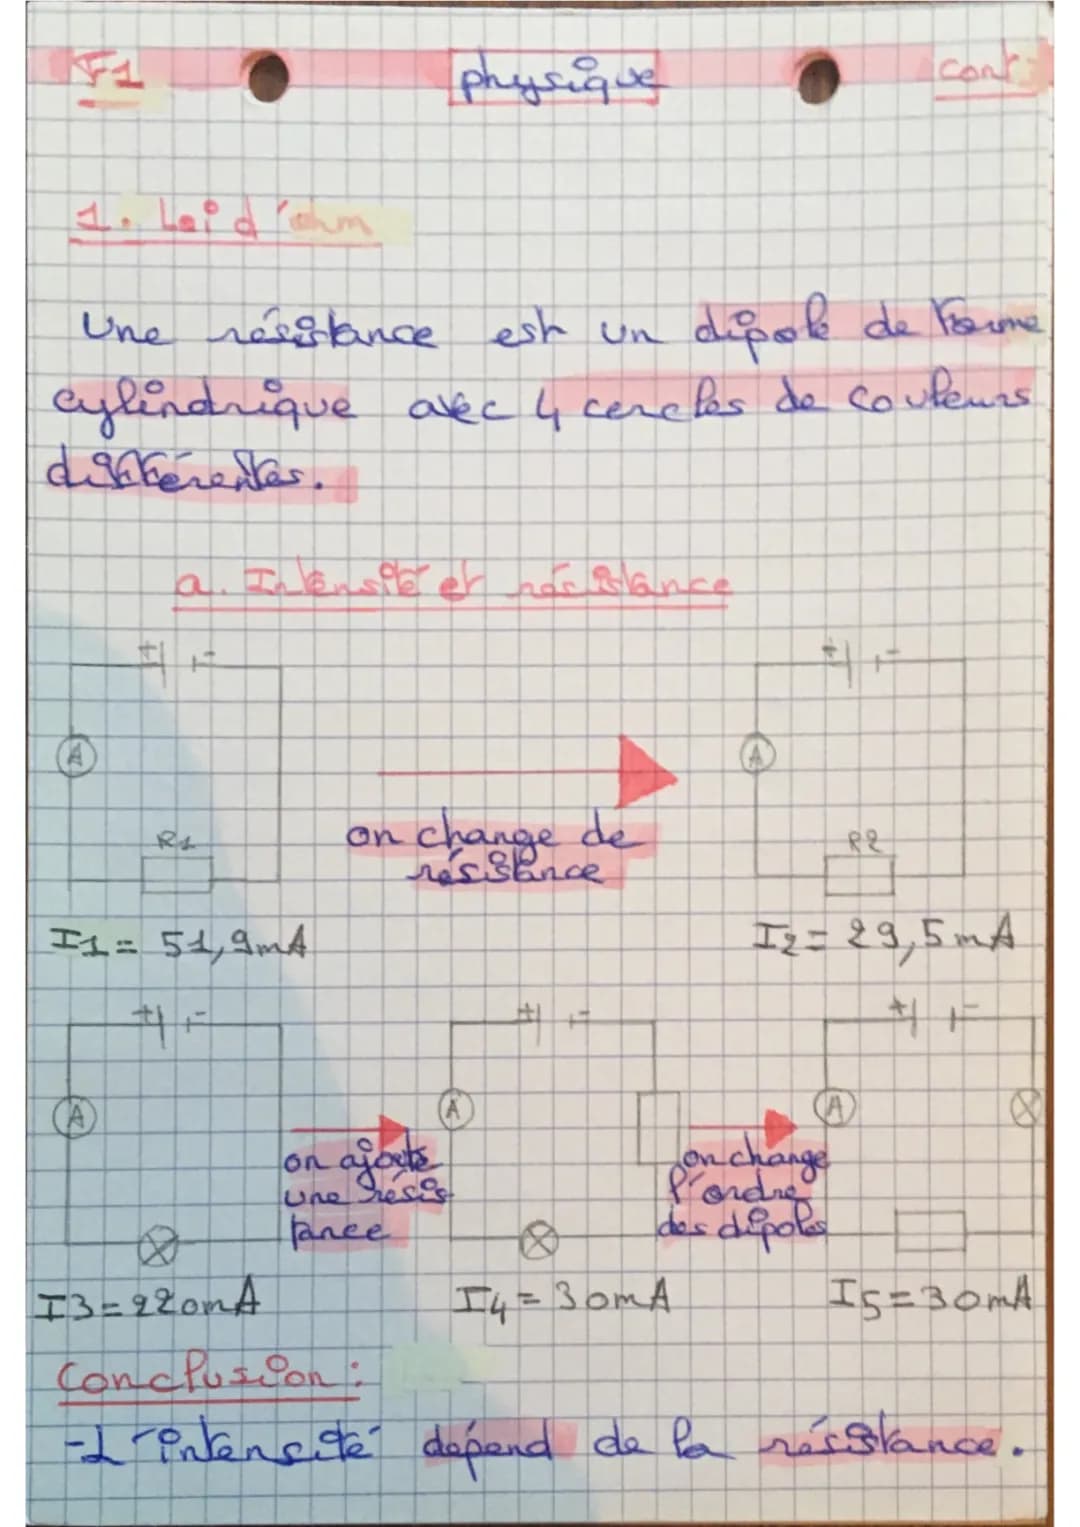 F1 physique cont:
1. Loi d'ohm
Une résistance est un dipole de forme
cylindrique avec 4 cercles de couleurs
différentes.
a. Intensité et résistance
+ -
+ -
A
A
on change de
résistance
R1
R2
I1 = 51,9mA
I2 = 29,5mA
+ -
+ -
+ -
A
A
A
on ajoute
une résis
tance
on change
l'ordre
des dipoles
I3=220mA
I4=30mA
I5=30mA
Conclusion :
-L'intensité dépend de la résistance.